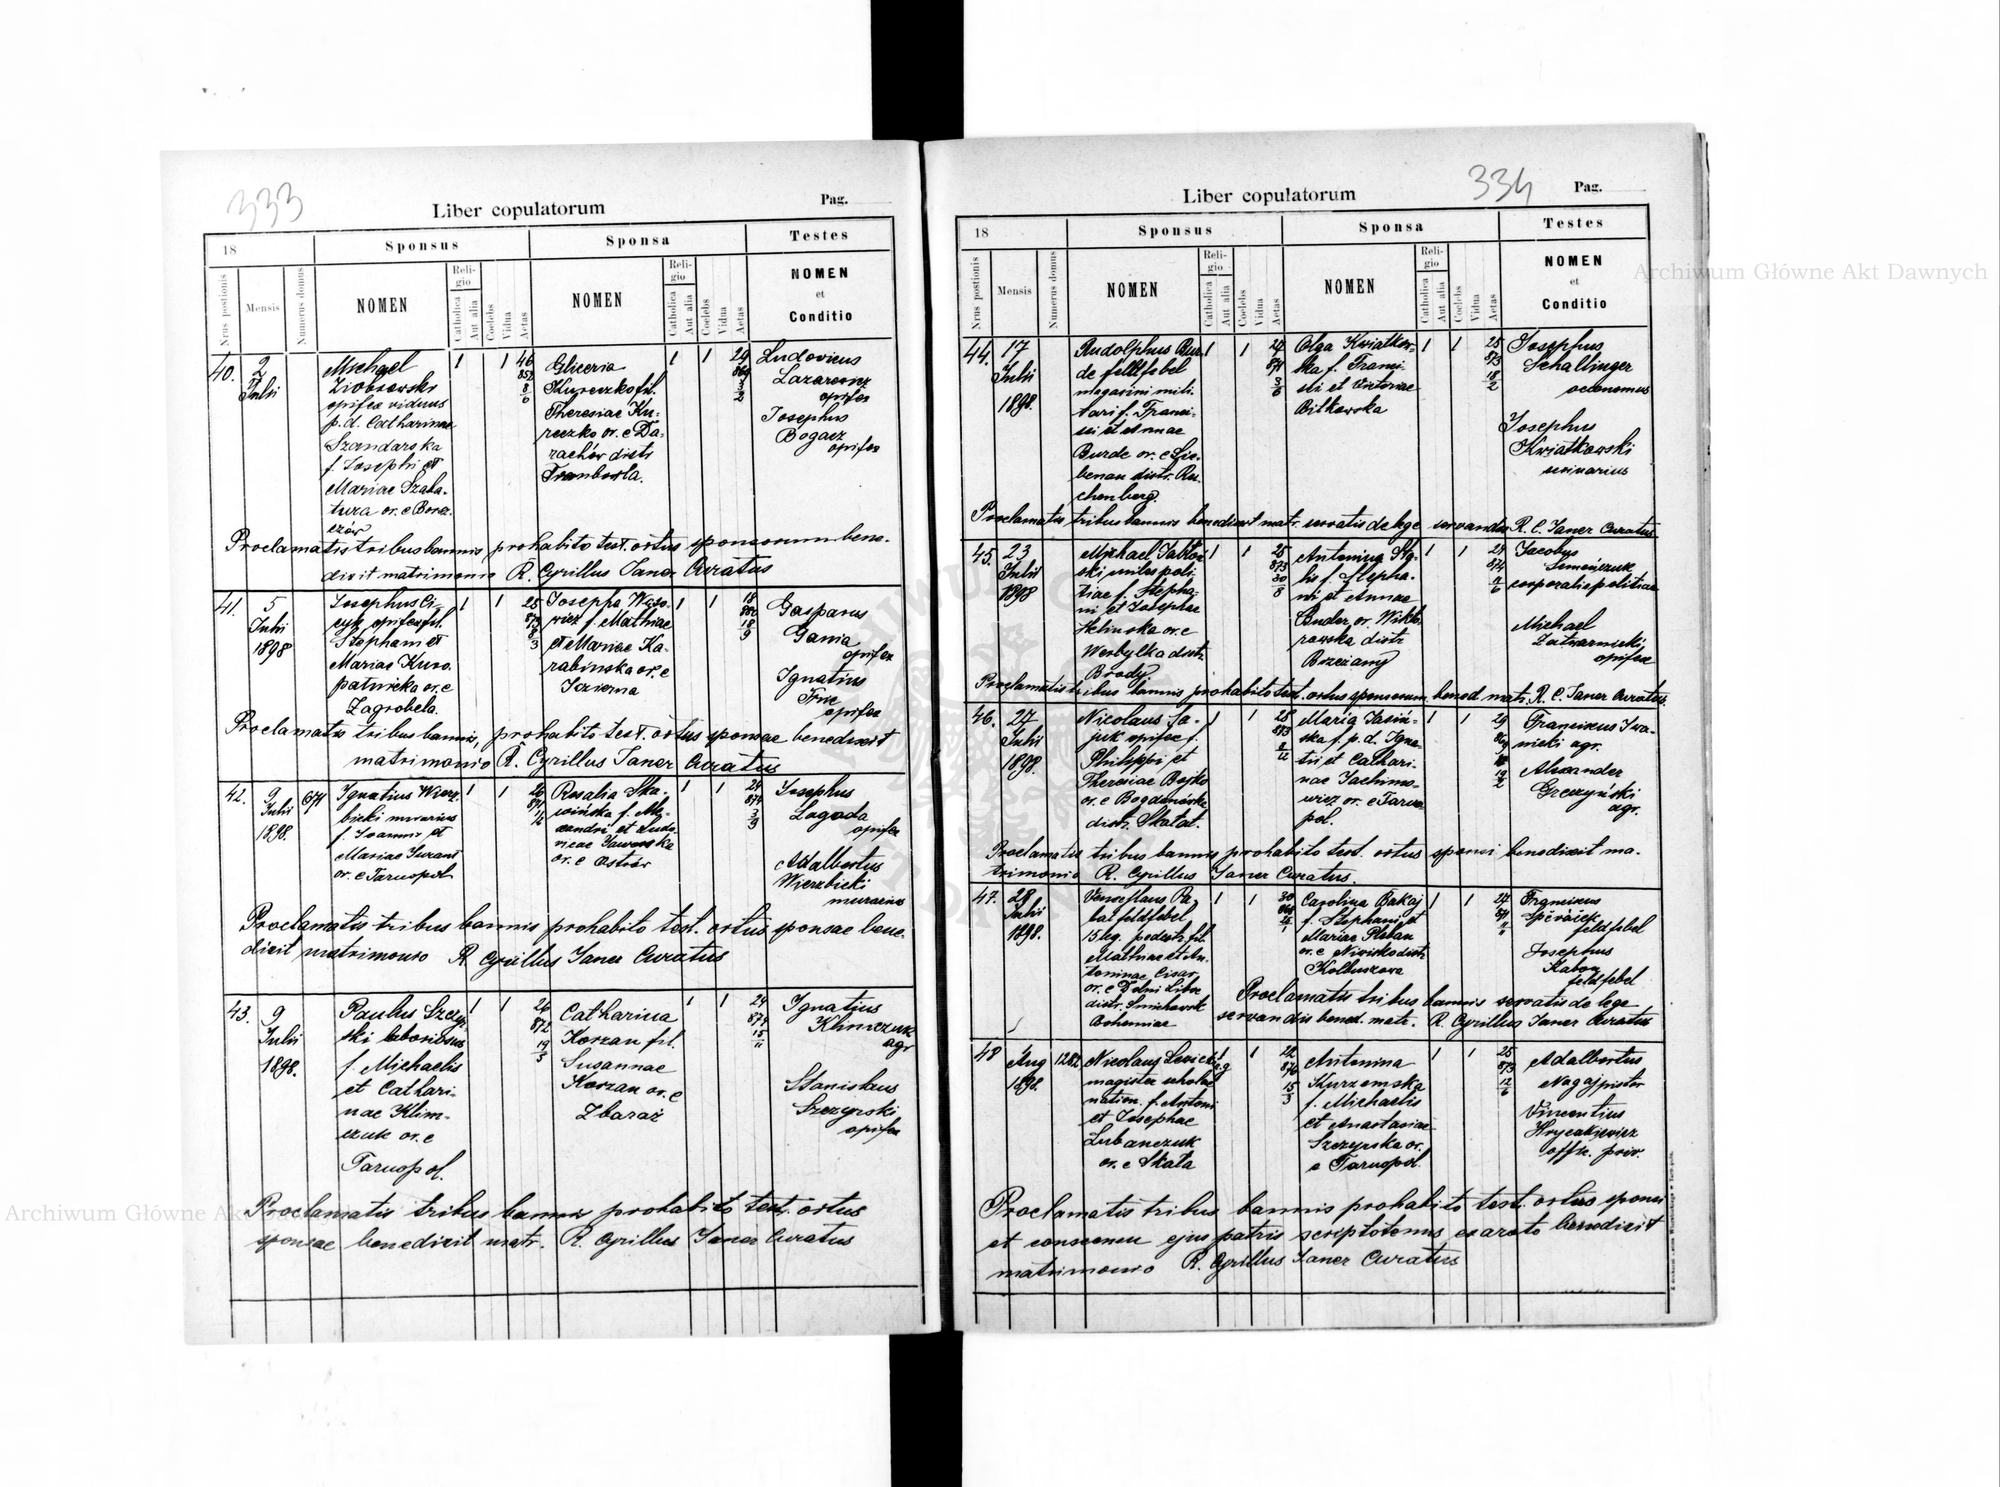 333
Liber copulatorum
Pag.
18
Sponsus
Sponsa
Testes
Nrus postionis
Mensis
Numerus domus
NOMEN
Reli-
gio
Catholica
Aut alia
Coelebs
Vidua
Aetas
NOMEN
Reli-
gio
Catholica
Aut alia
Coelebs
Vidua
Aetas
NOMEN
et
Conditio
40.
2
Julii
Michael
opifex viduus
p. d. Catharinae
Szandarska
f. Josephi et
Mariae Szaba-
tura or. e Borsz-
czów
1
1
46
852
8
6
Gliceria
Kureczko fil.
Theresiae Ku-
reczko or. e Da-
rachów distr.
Trembowla.
1
1
29
869
3
2
Ludovicus
Lazarewicz
opifex
Josephus
Bogacz
opifex
Proclamatis tribus bannis prohabito test. ortus sponsorum bene-
dixit matrimonio R. Cyrillus Janer Curatus
41.
5
Julii
1898
Josephus Ci-
opifex fil.
Stephani et
Mariae Kuro-
patnicka or. e
Zagrobela.
1
1
25
873
8
3
Josepha
f. Mathiae
et Mariae Ka-
rabinska or. e
Jezierna
1
1
18
880
18
9
Gasparus
Gania
opifex
Ignatius
opifex
Proclamatis tribus bannis, prohabito test. ortus sponsae benedixit
matrimonio R. Cyrillus Janer Curatus
42.
9
Julii
1898.
671
Ignatius Wierz-
bicki murarius
f. Joannis et
Mariae
or. e Tarnopol
1
1
Rosalia Ska-
wińska f. Ale-
xandri et Ludo-
vicae Jaworska
or. e Ostrów
1
1
24
874
3
9
Josephus
Lagoda
opifex
Adalbertus
Wierzbicki
murarius
Proclamatis tribus bannis prohabito test. ortus sponsae bene-
dixit matrimonio R. Cyrillus Janer Curatus
43.
9
Julii
1898.
Paulus Szczyr-
ski laboriosus
f. Michaelis
et Cathari-
nae Klim-
czuk or. e
Tarnopol.
1
1
26
872
19
3
Catharina
Korzan fil.
Susannae
Korzan or. e
Zbaraż
1
1
24
874
15
11
Ignatius
Klimczuk
agr
Stanislaus
Szczyrski
opifex
Proclamatis tribus bannis prohabito test. ortus
sponsae benedixit matr. R. Cyrillus Janer Curatus
Liber copulatorum
334
Pag.
18
Sponsus
Sponsa
Testes
Nrus postionis
Mensis
Numerus domus
NOMEN
Reli-
gio
Catholica
Aut alia
Coelebs
Vidua
Aetas
NOMEN
Reli-
gio
Catholica
Aut alia
Coelebs
Vidua
Aetas
NOMEN
et
Conditio
44.
17
Julii
1898.
Rudolphus Bur-
de feldfebel
magazini mili-
tari f. Franci-
sci et Annae
Burde or. e Lie-
benau distr. Rei-
chenberg.
1
1
27
871
3
6
Olga Kwiatkow-
ska f. Franci-
sci et Victoriae
Bilkowska
1
1
25
873
18
2
Josephus
Schallinger
oeconomus
Josephus
Kwiatkowski
Proclamatis tribus bannis benedixit matr. servatis de lege servandis R. C. Janer Curatus.
45.
23
Julii
1898
Michael Jabłoń-
ski miles poli-
tiae f. Stepha-
ni et Josephae
Helinska or. e
Werbylka distr.
Brody.
1
1
25
873
30
8
Antonina
f. Stepha-
ni et Annae
Buder or.
distr.
Brzeżany
1
1
24
874
6
Jacobus
Semończuk
corporalis politiae
Michael
Zatwarnicki
opifex
Proclamatis tribus bannis prohabito test. ortus sponsorum bened. matr. R. C. Janer Curatus.
46.
27
Julii
1898.
Nicolaus Ja-
juk opifex f.
Philippi et
Theresiae Bojko
or. e Bogdanówka
distr. Skałat.
1
1
28
873
Maria Jasiń-
ska f. p. d. Igna-
tii et Cathari-
nae Jachimo-
wicz or. e Tarno-
pol.
1
1
29
869
Franciscus Iwa-
nicki agr.
Alexander
Greczyński
agr.
Proclamatis tribus bannis prohabito test. ortus sponsi benedixit ma-
trimonio R. Cyrillus Janer Curatus.
47.
28
Julii
1898.
Venceslaus
feldfebel
15 leg. pedestr. fil.
Mathiae et An-
toninae Cisar
or. e Dolni Liboc
distr. Smichovsk
Bohemiae
1
1
30
868
Carolina Bakaj
f. Stephani et
Mariae Pleban
or. e Niwisko distr.
Kolbuszowa
1
1
27
871
Franciscus
feldfebel
Josephus
feldfebel
Proclamatis tribus bannis servatis de lege
servandis bened. matr. R. Cyrillus Janer Curatus
48
1
Aug
1898.
1282
Nicolaus Lewicki
magister schola
nation. f. Antoni
et Josephae
Lubanczuk
or. e Skała
1
22
876
15
3
Antonina
Kurzemska
f. Michaelis
et Anastasiae
Szczyrska or.
e Tarnopol.
1
1
25
873
12
6
Adalbertus
Nagaj pistor
Vincentius
Hrycakiewicz
offic. priv.
Proclamatis tribus bannis prohabito test. ortus sponsi
et consensu ejus patris scriptotenus exarato benedixit
matrimonio R. Cyrillus Janer Curatus
Archiwum Główne Akt Dawnych
Archiwum Główne Akt